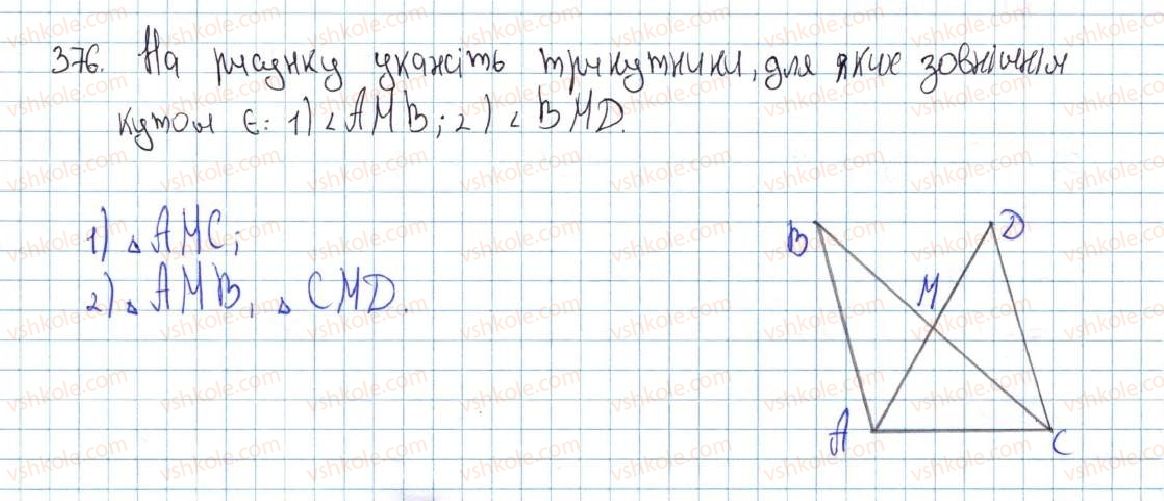 376. На рисунку укажіть трикутники, для яких зовнішнім
кутом є: 1) ∠AMB; 2) ∠BMD.
1) △AMC;
2) △AMB, △CMD.
B
D
M
A
C
vshkole.com